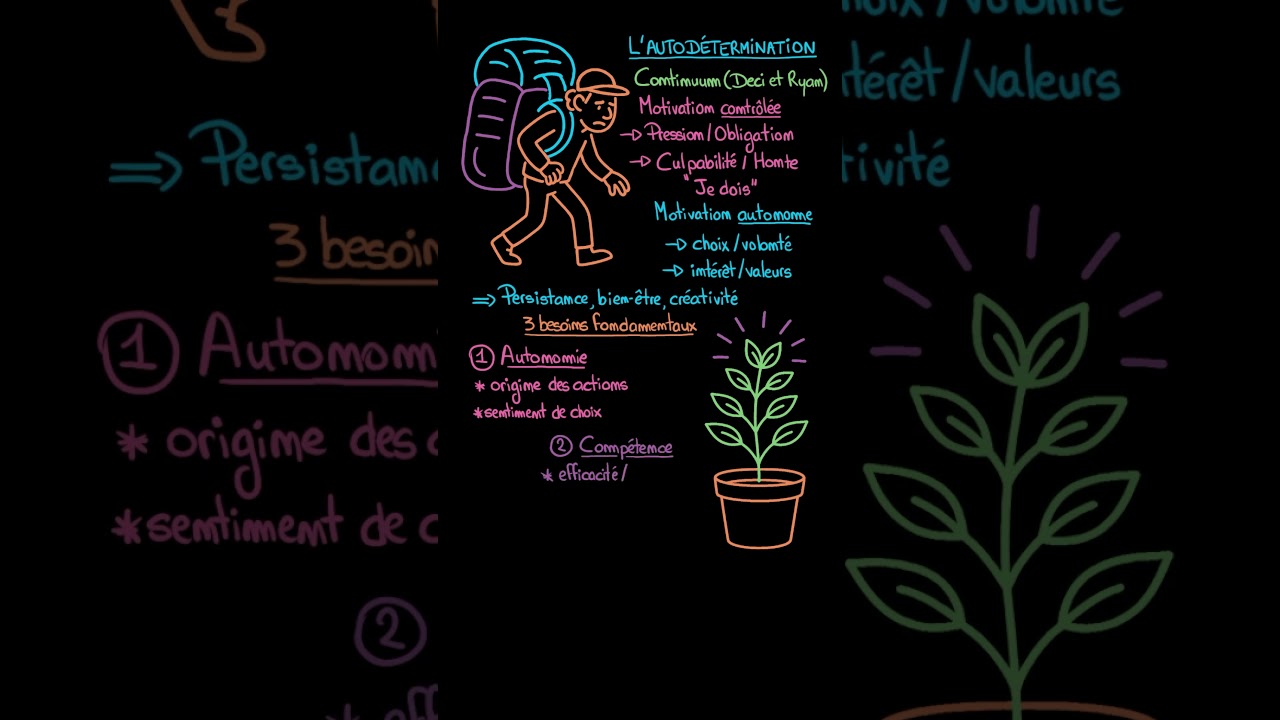 L'AUTODÉTERMINATION
Continuum (Deci et Ryan)
Motivation contrôlée
→ Pression / Obligation
→ Culpabilité / Honte
"Je dois"
Motivation autonome
→ choix / volonté
→ intérêt / valeurs
⇒ Persistance, bien-être, créativité
3 besoins fondamentaux
1 Autonomie
* origine des actions
* sentiment de choix
2 Compétence
* efficacité /